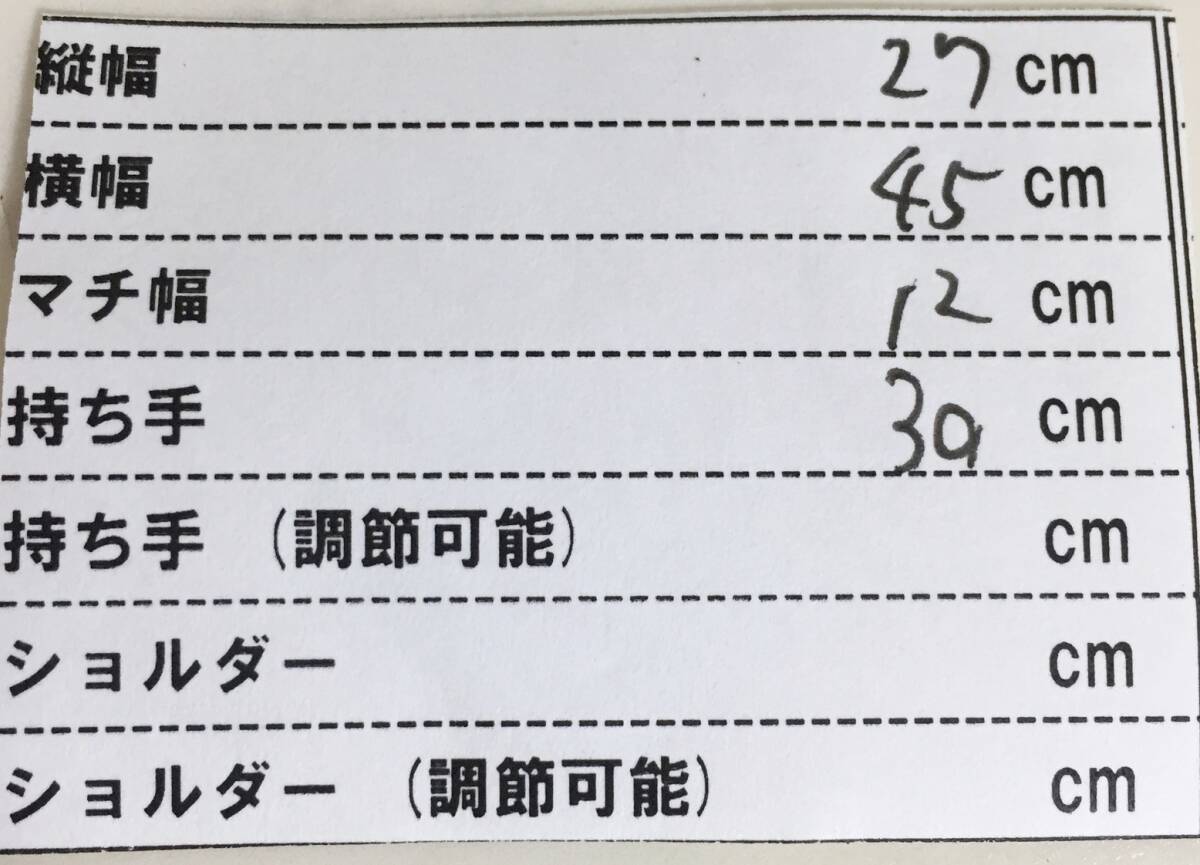 縦幅 27 cm
横幅 45 cm
マチ幅 12 cm
持ち手 30 cm
持ち手 (調節可能) cm
ショルダー cm
ショルダー (調節可能) cm